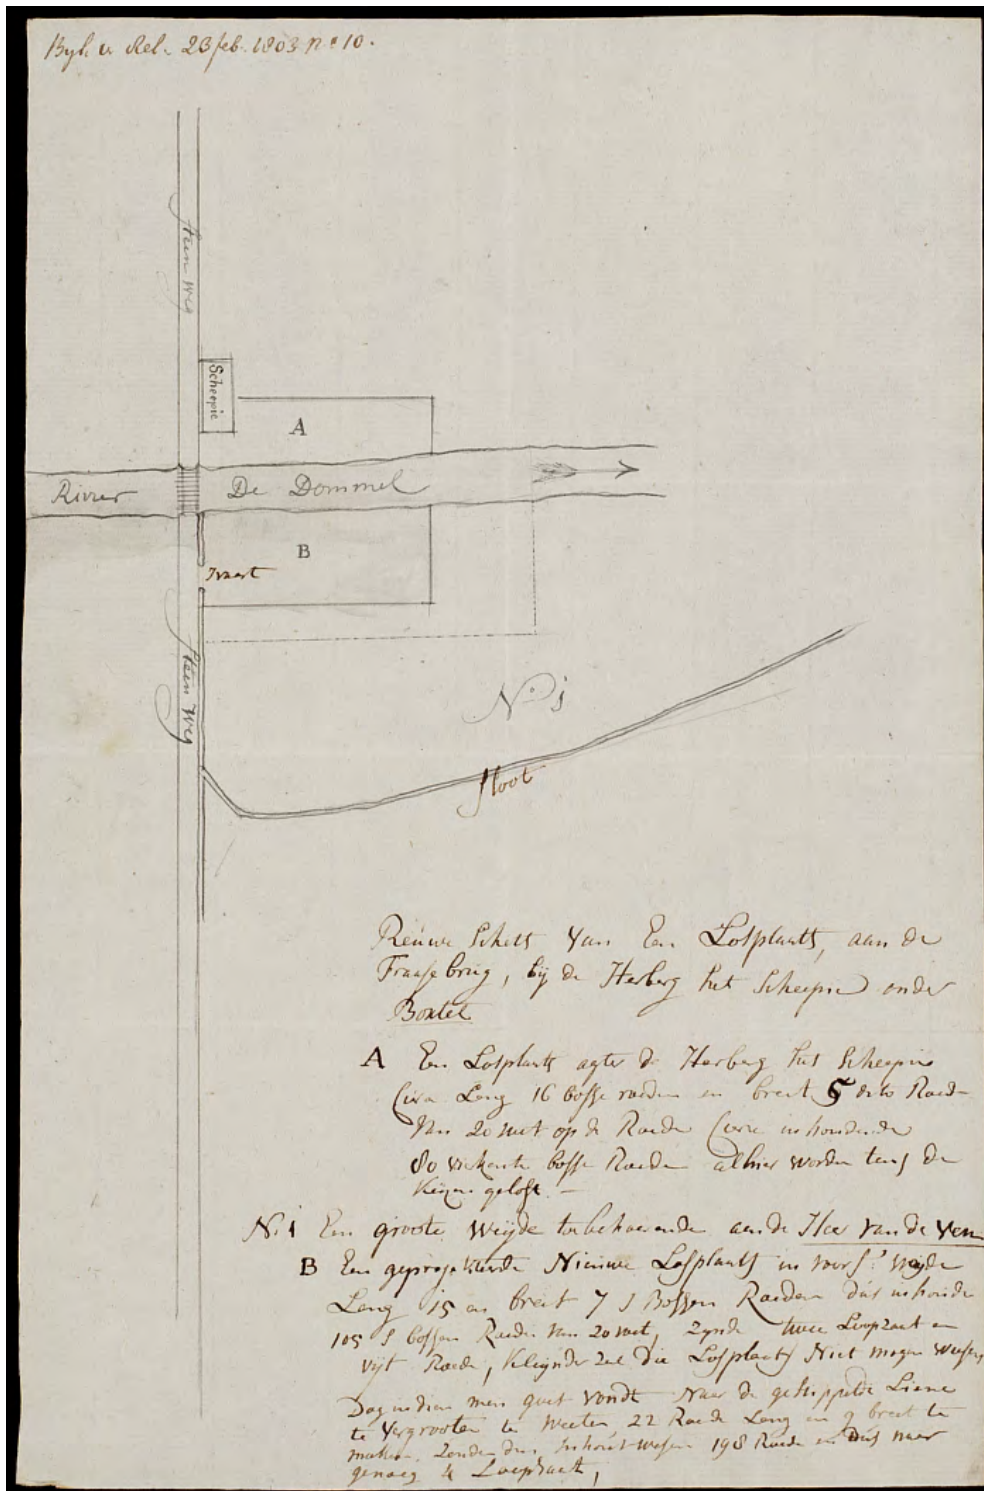 Byl. a Rel. 23 feb. 1803 No 10.
Steen Weg
Scheepie
A
Rivier De Dommel
B
Steen Weg
No 1
Sloot
Schets Van Een Losplaats, aan de
brug, bij de Herberg het Scheepie onder
Boxtel
A Een Losplaats agter de Herberg het Scheepie
Circa Leng 16 bosse roeden en breet 5 dito Roed
Van 20 voet op de Roede Circa inhoudende
80 vierkante bosse Roeden alhier worden
gelost. -
No 1 Een groote Weijde toebehoorende aan de Heer Van de Ven
B Een geprojekteerde Nieuwe Losplaats in voors. weijde
Leng 15 en breet 7 s Bossen Roeden dus inhoude
105 s bossen Roeden van 20 voet, Zynde twee Loopzaet en
vijf Roede, Kleijnder zal die Losplaats Niet mogen weesen
Dog indien men goet vondt Naar de gestippelde Liene
te Vergrooten te Weeten 22 Roede Leng en 9 breet te
maken, Zoude den Inhout wesen 198 Roede en dus naar
genoeg 4 Loopzaet,